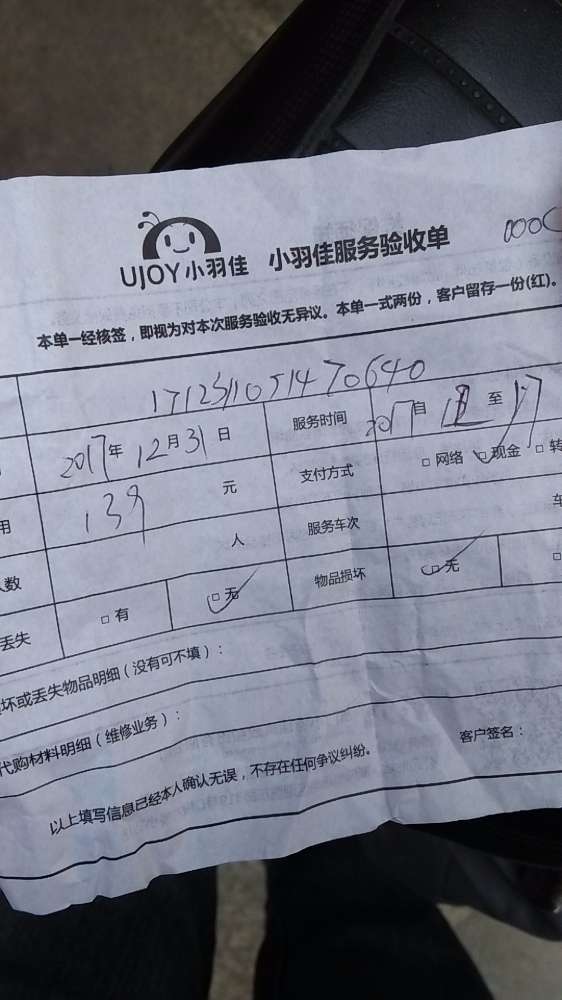 UJOY小羽佳 小羽佳服务验收单 000
本单一经核签，即视为对本次服务验收无异议。本单一式两份，客户留存一份(红)。
服务时间 2017自 至 17
2017年12月31日 支付方式 □网络 □现金 □转
用 139 元 服务车次 车
人数 人 物品损坏 □无 □
丢失 □有 □无
坏或丢失物品明细（没有可不填）：
代购材料明细（维修业务）：
客户签名：
以上填写信息已经本人确认无误，不存在任何争议纠纷。